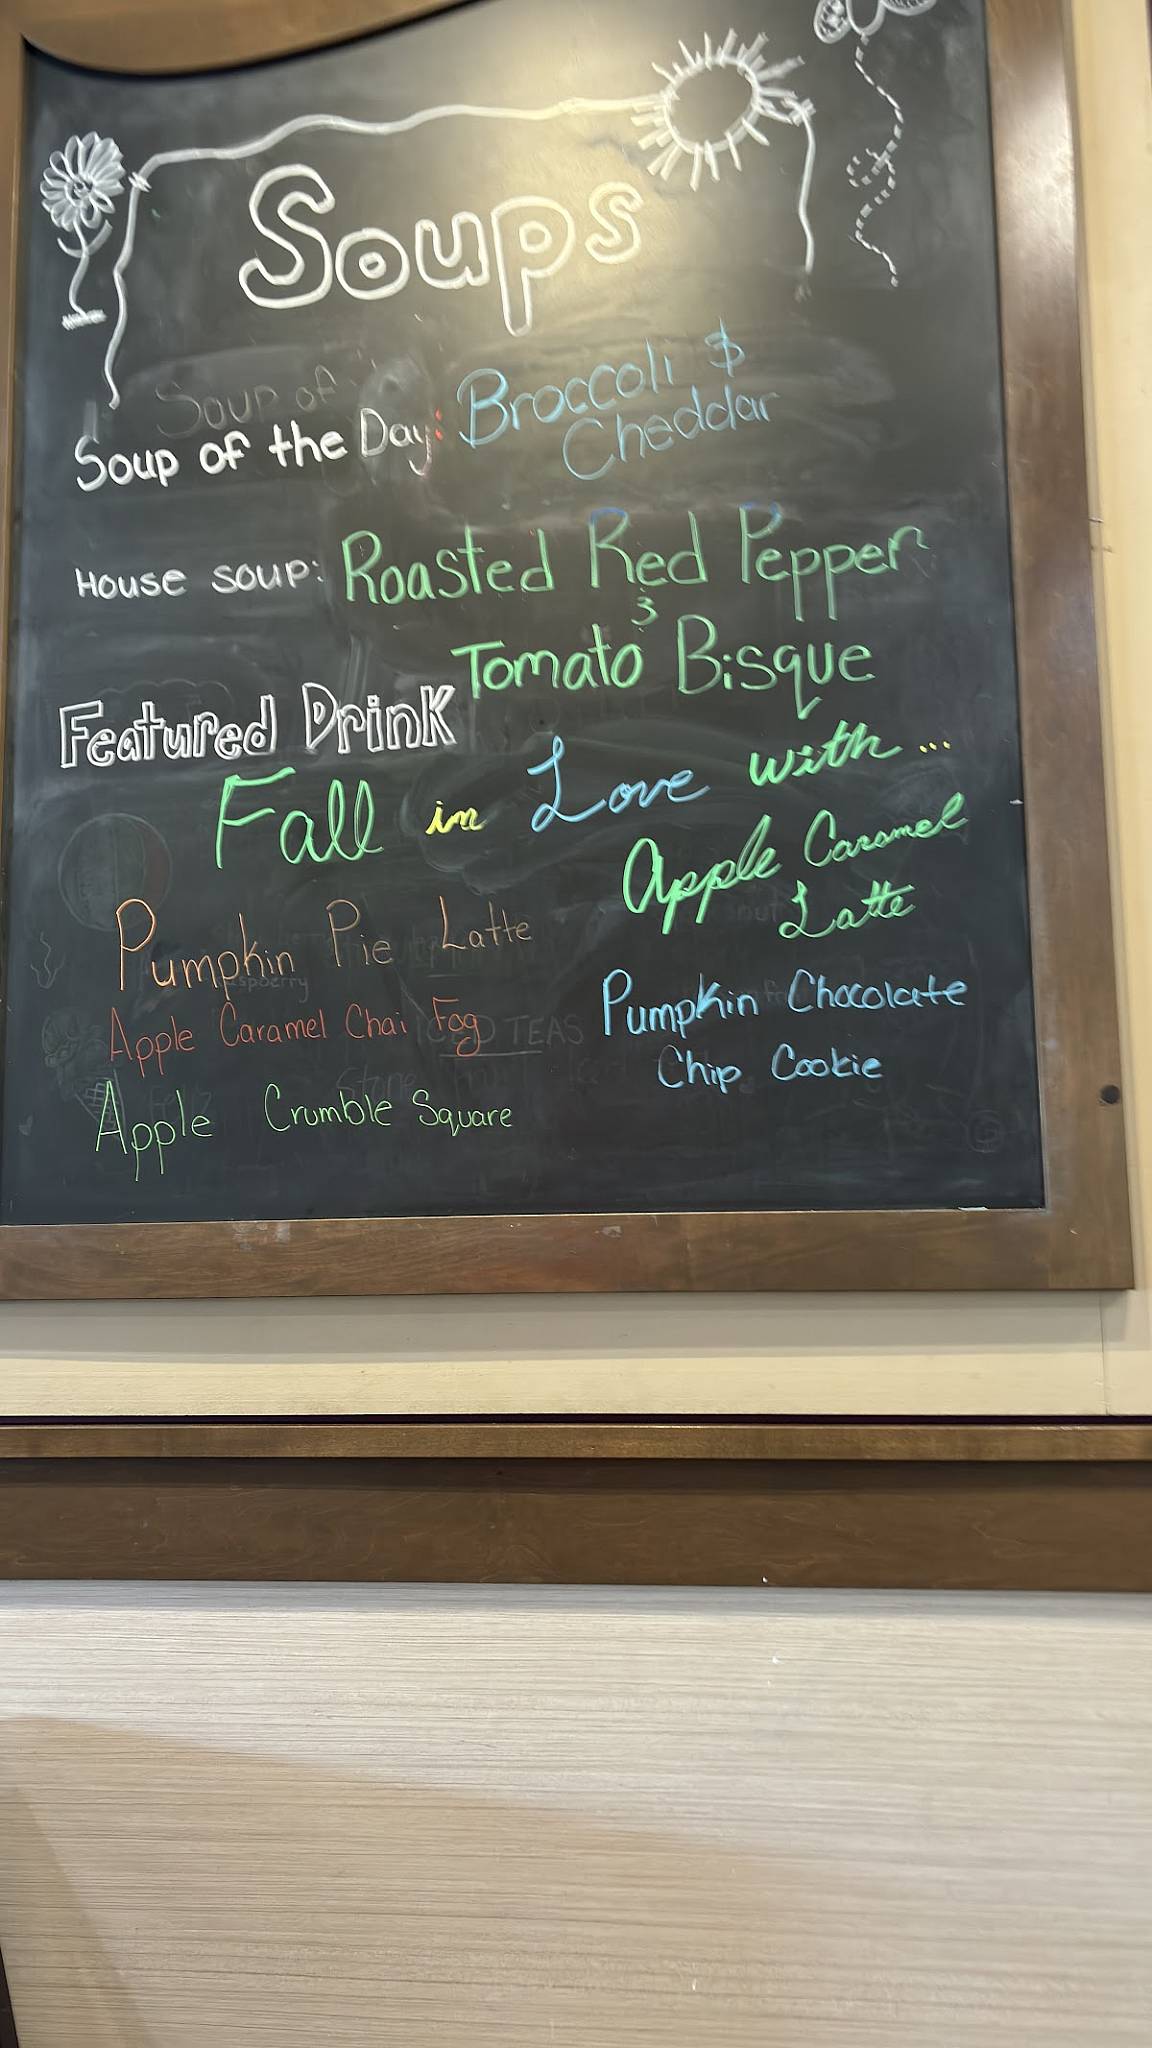 Soups
Soup of
Soup of the Day: Broccoli &
Cheddar
House soup: Roasted Red Pepper
&
Tomato Bisque
Featured Drink
Fall in Love with...
Apple Caramel
Latte
Pumpkin Pie Latte
Pumpkin Chocolate
Chip Cookie
Apple Caramel Chai Fog
ICED TEAS
Apple Crumble Square